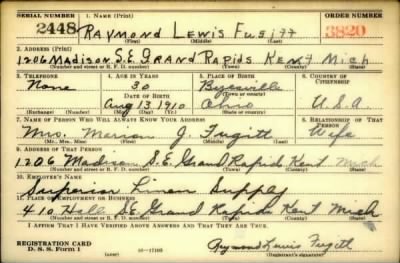 SERIAL NUMBER 1. NAME (Print) ORDER NUMBER
2448 RAYMOND LEWIS FUGITT 3820
(First) (Middle) (Last)
2. ADDRESS (Print)
1206 MADISON S.E. GRAND RAPIDS KENT MICH
(Number and street or R. F. D. number) (Town) (County) (State)
3. TELEPHONE 4. AGE IN YEARS 5. PLACE OF BIRTH 6. COUNTRY OF CITIZENSHIP
None 30 Byesville
DATE OF BIRTH
Aug 13 1910 Ohio U.S.A.
(Exchange) (Number) (Mo.) (Day) (Yr.) (State or country)
7. NAME OF PERSON WHO WILL ALWAYS KNOW YOUR ADDRESS 8. RELATIONSHIP OF THAT PERSON
Mrs. Marion J. Fugitt Wife
(Mr., Mrs., Miss) (First) (Middle) (Last)
9. ADDRESS OF THAT PERSON
1206 Madison S.E. Grand Rapids Kent Mich
(Number and street or R. F. D. number) (Town) (County) (State)
10. EMPLOYER'S NAME
Superior Linen Supply
11. PLACE OF EMPLOYMENT OR BUSINESS
410 Hall S.E. Grand Rapids Kent Mich
(Number and street or R. F. D. number) (Town) (County) (State)
I AFFIRM THAT I HAVE VERIFIED ABOVE ANSWERS AND THAT THEY ARE TRUE.
REGISTRATION CARD
D. S. S. Form 1 16-17105 Raymond Lewis Fugitt
(over) (Registrant's signature)